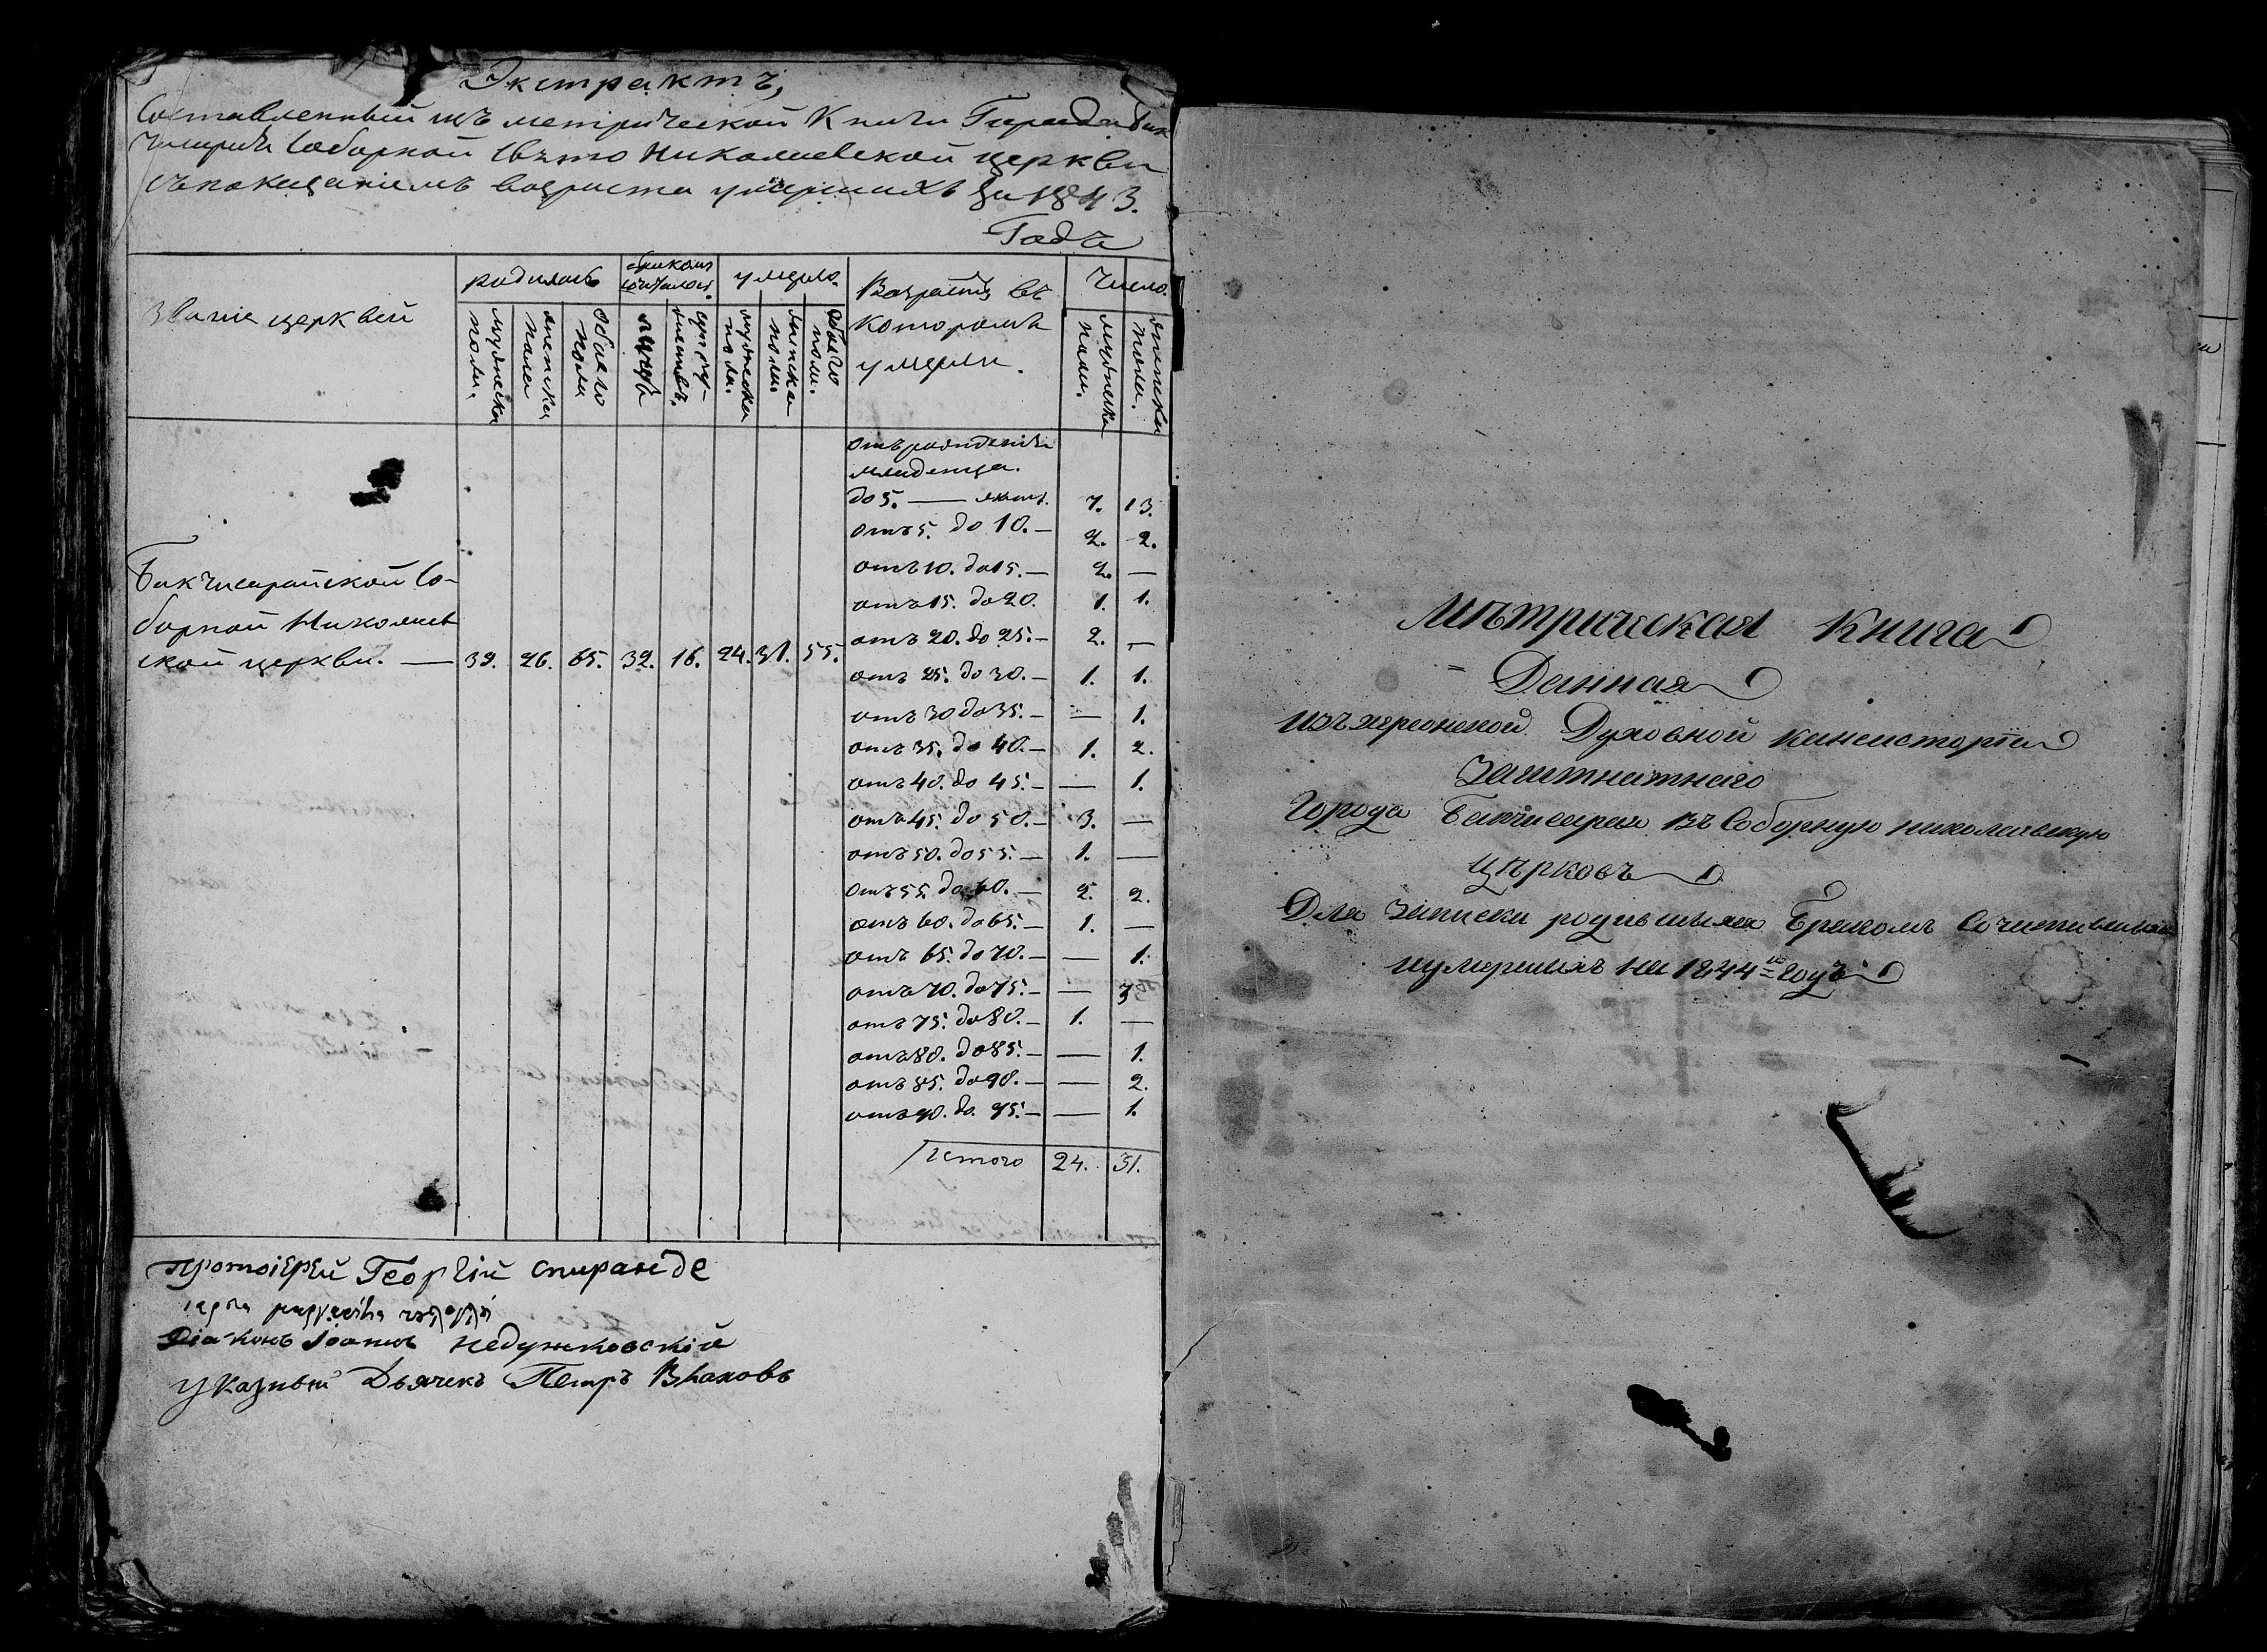 Экстрактъ,
Составленный изъ метрической Книги Города Бах
чисарая Соборной Свято Николаевской церкви
съ показаніемъ возраста умершихъ за 1843.
Годъ
Званіе церквей
родилось
бракомъ сочеталось
умерло.
Возрастъ въ которомъ умерли.
Число.
мужеска пола.
женска пола
обоего пола
лицъ
супружествъ.
мужеска пола.
женска пола.
обоего пола.
мужеска пола.
женска пола.
отъ рожденія
младенца.
до 5. — лѣтъ. 7. 13.
отъ 5. до 10. — 2. 2.
отъ 10. до 15. — 2. —
отъ 15. до 20. 1. 1.
отъ 20. до 25. — 2. —
Бакчисарайской Со-
борной Николаев
ской церкви. — 39. 26. 65. 32. 16. 24. 31. 55.
отъ 25. до 30. — 1. 1.
отъ 30 до 35. — — 1.
отъ 35. до 40. — 1. 2.
отъ 40. до 45. — — 1.
отъ 45. до 50. — 3. —
отъ 50. до 55. — 1. —
отъ 55. до 60. — 2. 2.
отъ 60. до 65. — 1. —
отъ 65. до 70. — — 1.
отъ 70. до 75. — — 3
отъ 75. до 80. — 1. —
отъ 80. до 85. — — 1.
отъ 85. до 90. — — 2.
отъ 90. до. 95. — — 1.
Итого 24. 31.
протоіерей Георгій спиранде
Діаконъ Іоаннъ недужковскій
указный Дьячекъ Петръ Влаховъ
Мѣтрическая Книга
Данная
изъ херсонской Духовной кансисторіи
Заштнатнаго
Города Бакчисарая въ Соборную николаевскую
цѣрковъ
Для записки родившихся Бракомъ Сочетавшихся
иумершихъ на 1844=й годъ